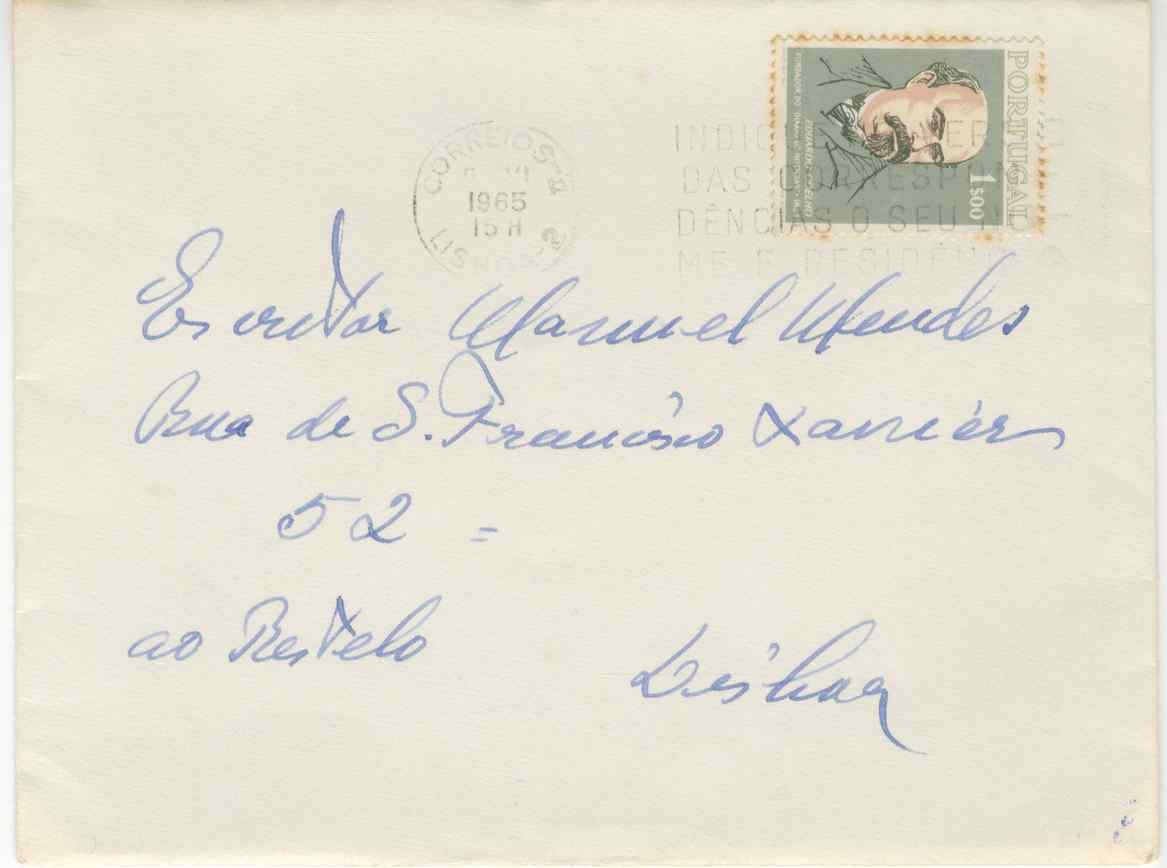 CORREIOS-2
1965
15 H
LISBOA-2
INDIQUE NO VERSO
DAS CORRESPON
DÊNCIAS O SEU NO
ME E RESIDÊNCIA
PORTUGAL
1$00
EDUARDO COELHO
FUNDADOR DO "DIÁRIO DE NOTÍCIAS"
Escritor Manuel Mendes
Rua de S. Francisco Xavier
52 =
ao Restelo
Lisboa